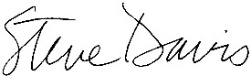 Steve Davis